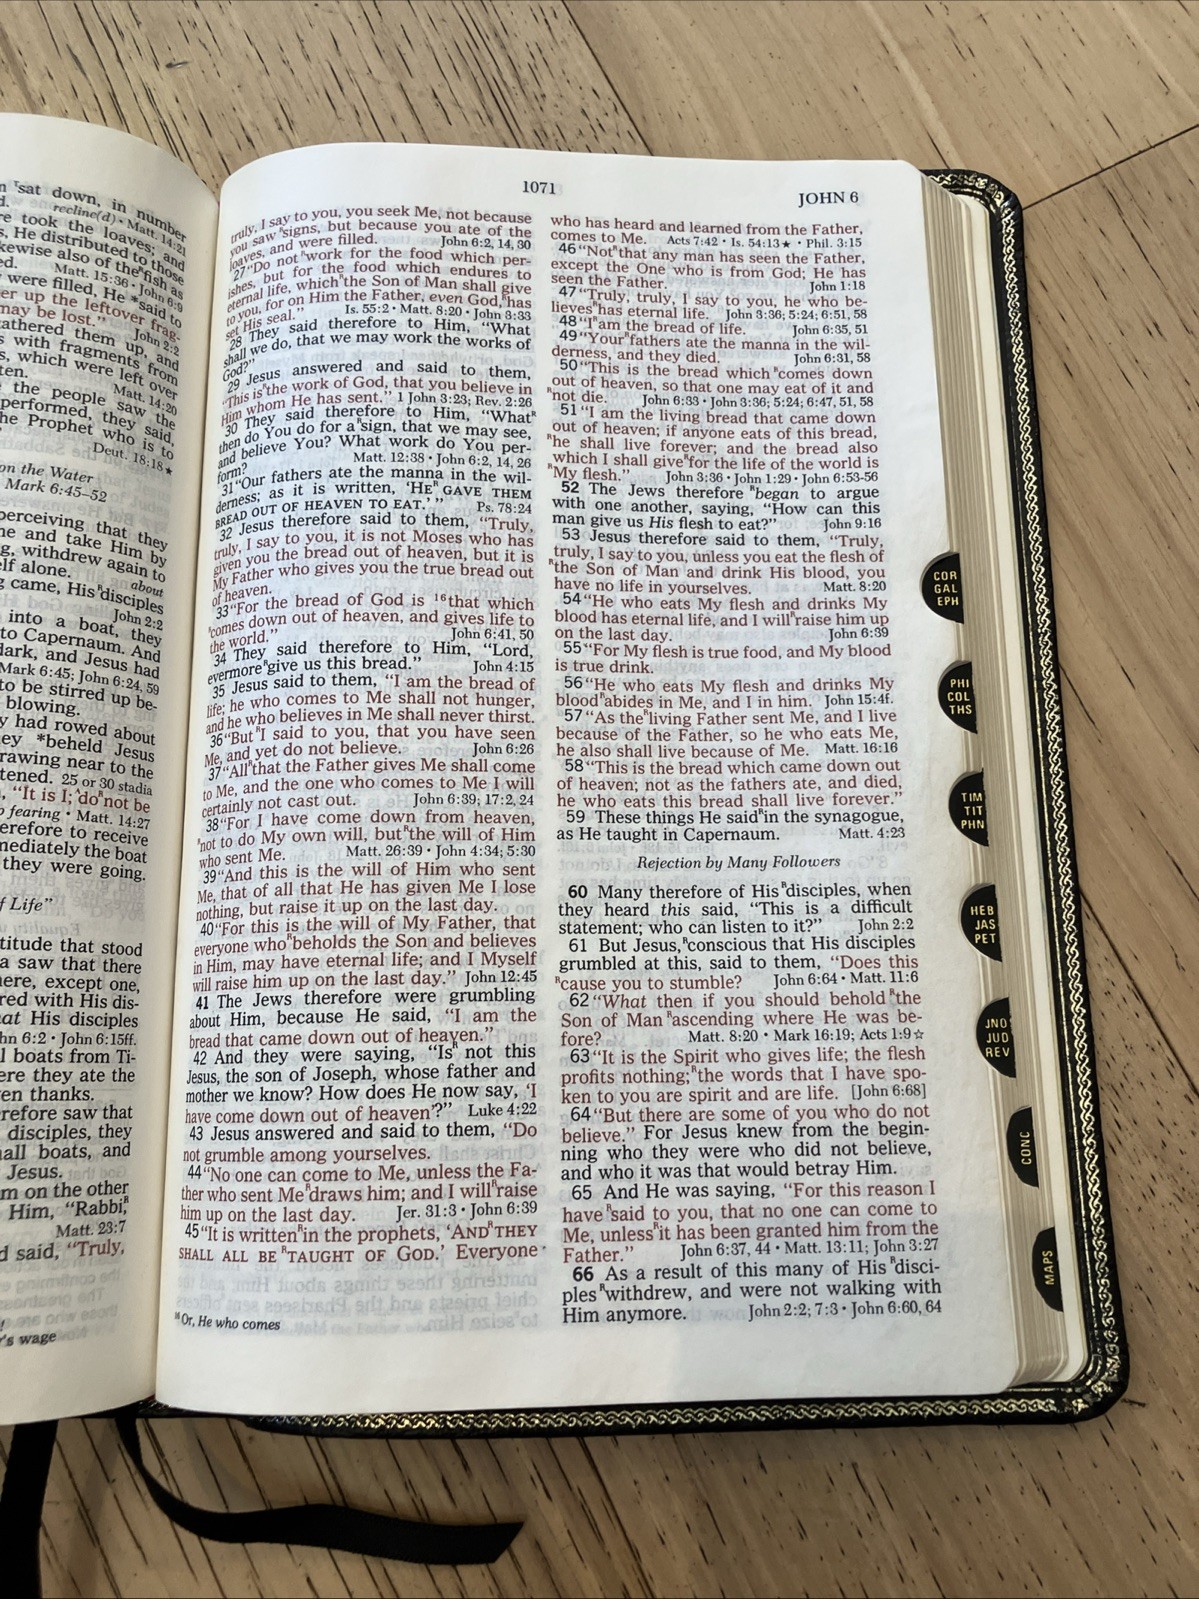 sat down, in number
recline(d) • Matt. 14:21
re took the loaves; and
s, He distributed to those
kewise also of the fish as
ed. Matt. 15:36 • John 6:9
were filled, He *said to
er up the leftover frag-
may be lost." John 2:2
athered them up, and
s with fragments from
s, which were left over
ten. Matt. 14:20
the people saw the
performed, they said,
he Prophet who is to
Deut. 18:18★
on the Water
Mark 6:45–52
perceiving that they
me and take Him by
g, withdrew again to
elf alone. about
g came, His disciples
John 2:2
into a boat, they
to Capernaum. And
dark, and Jesus had
Mark 6:45; John 6:24, 59
to be stirred up be-
blowing.
y had rowed about
ey *beheld Jesus
rawing near to the
tened. 25 or 30 stadia
, "It is I; do not be
p fearing • Matt. 14:27
erefore to receive
mediately the boat
they were going.
f Life"
titude that stood
a saw that there
here, except one,
red with His dis-
at His disciples
hn 6:2 • John 6:15ff.
l boats from Ti-
ere they ate the
ven thanks.
refore saw that
disciples, they
all boats, and
Jesus.
m on the other
Him, "Rabbi,
Matt. 23:7
d said, "Truly,
's wage
1071
JOHN 6
truly, I say to you, you seek Me, not because
you saw ᴿsigns, but because you ate of the
loaves, and were filled. John 6:2, 14, 30
27 "Do not ᴿwork for the food which per-
ishes, but for the food which endures to
eternal life, which ᴿthe Son of Man shall give
to you, for on Him the Father, even God, ᴿhas
set His seal." Is. 55:2 • Matt. 8:20 • John 3:33
28 They said therefore to Him, "What
shall we do, that we may work the works of
God?"
29 Jesus answered and said to them,
"This is ᴿthe work of God, that you believe in
Him whom He has sent." 1 John 3:23; Rev. 2:26
30 They said therefore to Him, "Whatᴿ
then do You do for a ᴿsign, that we may see,
and believe You? What work do You per-
form? Matt. 12:38 • John 6:2, 14, 26
31 "Our fathers ate the manna in the wil-
derness; as it is written, 'HEᴿ GAVE THEM
BREAD OUT OF HEAVEN TO EAT.' " Ps. 78:24
32 Jesus therefore said to them, "Truly,
truly, I say to you, it is not Moses who has
given you the bread out of heaven, but it is
My Father who gives you the true bread out
of heaven.
33 "For the bread of God is ¹⁶that which
ᴿcomes down out of heaven, and gives life to
the world." John 6:41, 50
34 They said therefore to Him, "Lord,
evermore ᴿgive us this bread." John 4:15
35 Jesus said to them, "I am the bread of
life; he who comes to Me shall not hunger,
and he who believes in Me shall never thirst.
36 "But ᴿI said to you, that you have seen
Me, and yet do not believe. John 6:26
37 "All ᴿthat the Father gives Me shall come
to Me, and the one who comes to Me I will
certainly not cast out. John 6:39; 17:2, 24
38 "For I have come down from heaven,
ᴿnot to do My own will, but ᴿthe will of Him
who sent Me. Matt. 26:39 • John 4:34; 5:30
39 "And this is the will of Him who sent
Me, that of all that He has given Me I lose
nothing, but raise it up on the last day.
40 "For this is the will of My Father, that
everyone who ᴿbeholds the Son and believes
in Him, may have eternal life; and I Myself
will raise him up on the last day." John 12:45
41 The Jews therefore were grumbling
about Him, because He said, "I am the
bread that came down out of heaven."
42 And they were saying, "Isᴿ not this
Jesus, the son of Joseph, whose father and
mother we know? How does He now say, 'I
have come down out of heaven'?" Luke 4:22
43 Jesus answered and said to them, "Do
not grumble among yourselves.
44 "No one can come to Me, unless the Fa-
ther who sent Me ᴿdraws him; and I will ᴿraise
him up on the last day. Jer. 31:3 • John 6:39
45 "It is written ᴿin the prophets, 'ANDᴿ THEY
SHALL ALL BE ᴿTAUGHT OF GOD.' Everyone
¹⁶ Or, He who comes
who has heard and learned from the Father,
comes to Me. Acts 7:42 • Is. 54:13★ • Phil. 3:15
46 "Not ᴿthat any man has seen the Father,
except the One who is from God; He has
seen the Father. John 1:18
47 "Truly, truly, I say to you, he who be-
lieves ᴿhas eternal life. John 3:36; 5:24; 6:51, 58
48 "I ᴿam the bread of life. John 6:35, 51
49 "Your ᴿfathers ate the manna in the wil-
derness, and they died. John 6:31, 58
50 "This is the bread which ᴿcomes down
out of heaven, so that one may eat of it and
ᴿnot die. John 6:33 • John 3:36; 5:24; 6:47, 51, 58
51 "I am the living bread that came down
out of heaven; if anyone eats of this bread,
ᴿhe shall live forever; and the bread also
which I shall give ᴿfor the life of the world is
ᴿMy flesh." John 3:36 • John 1:29 • John 6:53-56
52 The Jews therefore ᴿbegan to argue
with one another, saying, "How can this
man give us His flesh to eat?" John 9:16
53 Jesus therefore said to them, "Truly,
truly, I say to you, unless you eat the flesh of
ᴿthe Son of Man and drink His blood, you
have no life in yourselves. Matt. 8:20
54 "He who eats My flesh and drinks My
blood has eternal life, and I will ᴿraise him up
on the last day. John 6:39
55 "For My flesh is true food, and My blood
is true drink.
56 "He who eats My flesh and drinks My
blood ᴿabides in Me, and I in him. John 15:4f.
57 "As the ᴿliving Father sent Me, and I live
because of the Father, so he who eats Me,
he also shall live because of Me. Matt. 16:16
58 "This is the bread which came down out
of heaven; not as the fathers ate, and died,
he who eats this bread shall live forever."
59 These things He said ᴿin the synagogue,
as He taught in Capernaum. Matt. 4:23
Rejection by Many Followers
60 Many therefore of His ᴿdisciples, when
they heard this said, "This is a difficult
statement; who can listen to it?" John 2:2
61 But Jesus, ᴿconscious that His disciples
grumbled at this, said to them, "Does this
ᴿcause you to stumble? John 6:64 • Matt. 11:6
62 "What then if you should behold ᴿthe
Son of Man ᴿascending where He was be-
fore? Matt. 8:20 • Mark 16:19; Acts 1:9☆
63 "It is the Spirit who gives life; the flesh
profits nothing; ᴿthe words that I have spo-
ken to you are spirit and are life. [John 6:68]
64 "But there are some of you who do not
believe." For Jesus knew from the begin-
ning who they were who did not believe,
and who it was that would betray Him.
65 And He was saying, "For this reason I
have ᴿsaid to you, that no one can come to
Me, unless ᴿit has been granted him from the
Father." John 6:37, 44 • Matt. 13:11; John 3:27
66 As a result of this many of His ᴿdisci-
ples ᴿwithdrew, and were not walking with
Him anymore. John 2:2; 7:3 • John 6:60, 64
COR
GAL
EPH
PHI
COL
THS
TIM
TIT
PHN
HEB
JAS
PET
JNO
JUD
REV
CONC
MAPS